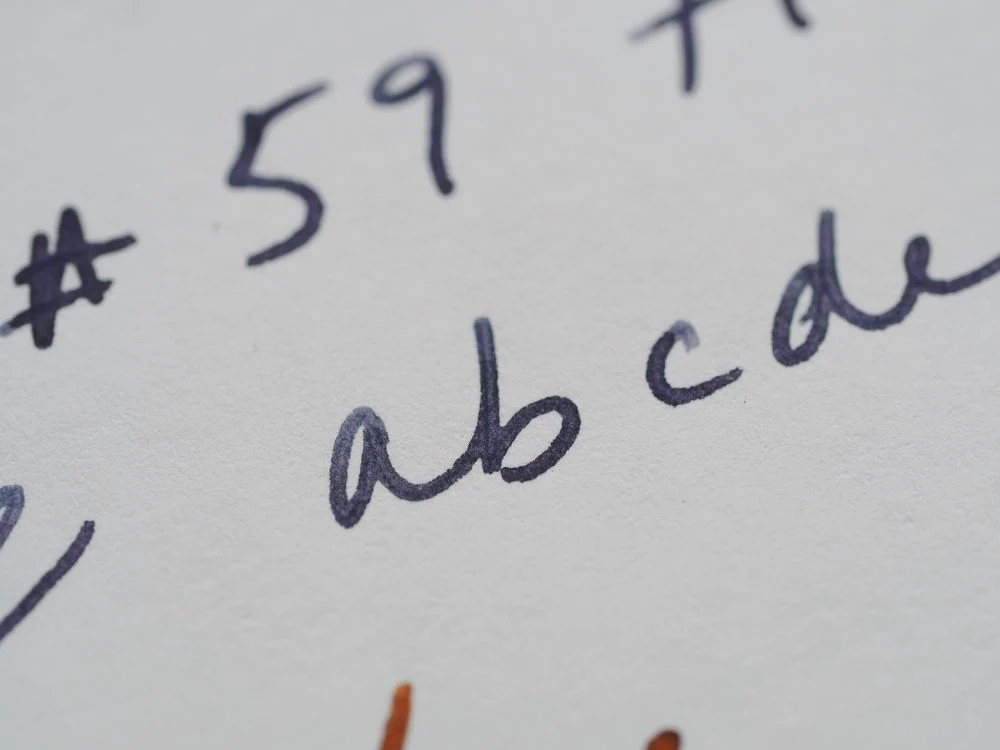 # 59
abcde